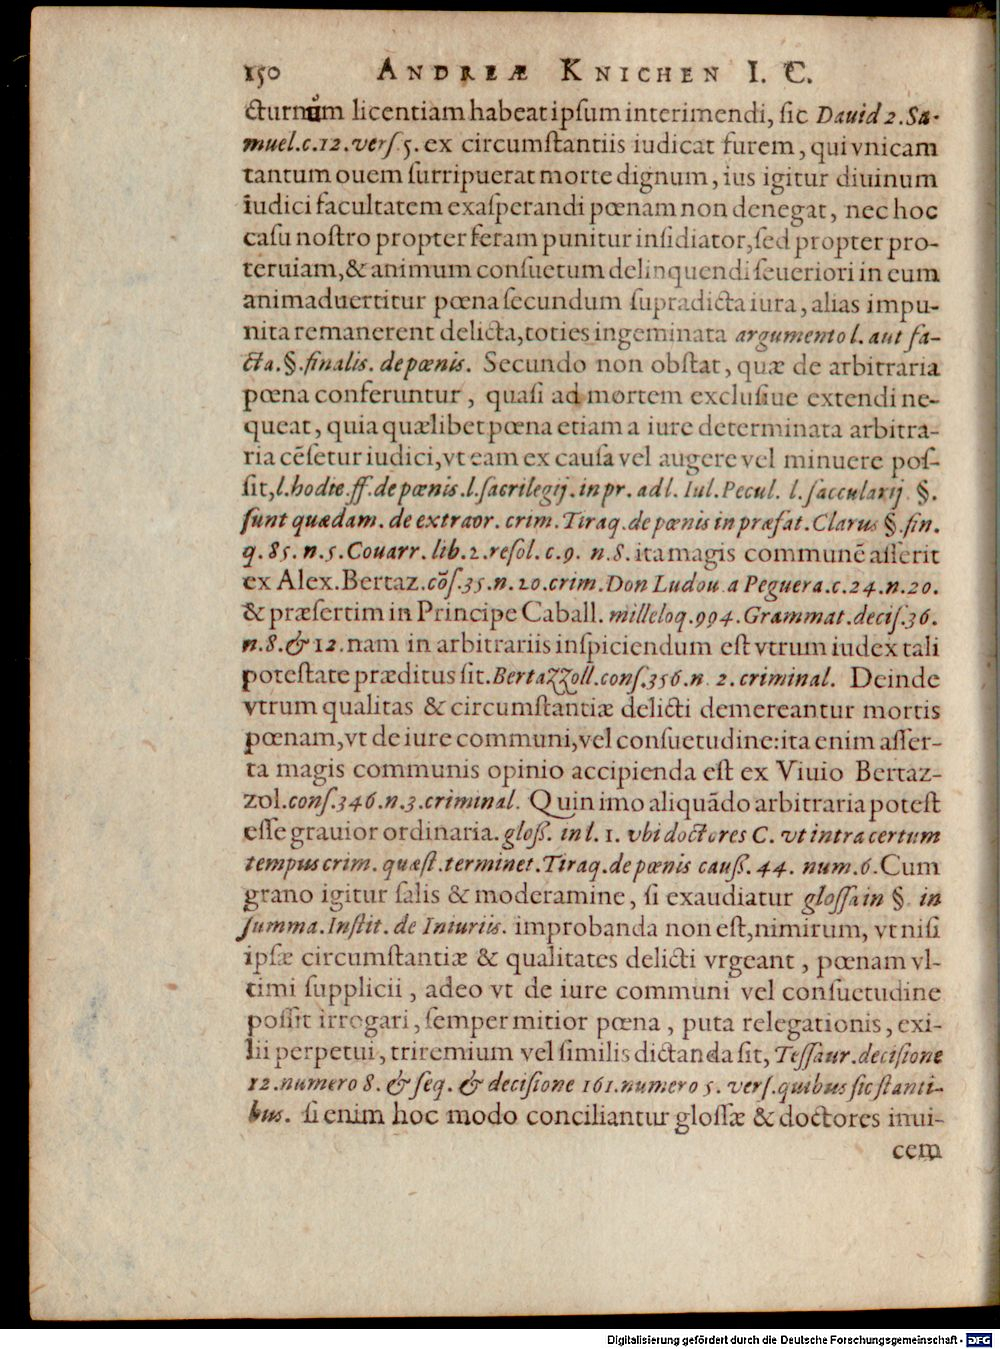 150 ANDREÆ KNICHEN I. C.
cturnum licentiam habeat ipſum interimendi, ſic Dauid 2. Sa-
muel.c.12.verſ.5. ex circumſtantiis iudicat furem, qui vnicam
tantum ouem ſurripuerat morte dignum, ius igitur diuinum
iudici facultatem exaſperandi pœnam non denegat, nec hoc
caſu noſtro propter feram punitur inſidiator, ſed propter pro-
teruiam, & animum conſuetum delinquendi ſeueriori in eum
animaduertitur pœna ſecundum ſupradicta iura, alias impu-
nita remanerent delicta, toties ingeminata argumento l. aut fa-
cta. §. finalis. de pœnis. Secundo non obſtat, quæ de arbitraria
pœna conferuntur, quaſi ad mortem excluſiue extendi ne-
queat, quia quælibet pœna etiam a iure determinata arbitra-
ria cẽſetur iudici, vt eam ex cauſa vel augere vel minuere poſ-
ſit, l. hodie. ff. de pœnis. l. ſacrilegij. in pr. ad l. Iul. Pecul. l. ſaccularij. §.
ſunt quædam. de extraor. crim. Tiraq. de pœnis in præfat. Clarus §. fin.
q. 85. n. 5. Couarr. lib. 2. reſol. c. 9. n. 8. ita magis communẽ aſſerit
ex Alex. Bertaz. cõſ. 35. n. 20. crim. Don Ludou. a Peguera. c. 24. n. 20.
& præſertim in Principe Caball. milleloq. 994. Grammat. deciſ. 36.
n. 8. & 12. nam in arbitrariis inſpiciendum eſt vtrum iudex tali
poteſtate præditus ſit. Bertazzoll. conſ. 356. n. 2. criminal. Deinde
vtrum qualitas & circumſtantiæ delicti demereantur mortis
pœnam, vt de iure communi, vel conſuetudine: ita enim aſſer-
ta magis communis opinio accipienda eſt ex Viuio Bertaz-
zol. conſ. 346. n. 3. criminal. Quin imo aliquãdo arbitraria poteſt
eſſe grauior ordinaria. gloſſ. in l. 1. vbi doctores C. vt intra certum
tempus crim. quæſt. terminet. Tiraq. de pœnis cauſſ. 44. num. 6. Cum
grano igitur ſalis & moderamine, ſi exaudiatur gloſſa in §. in
ſumma. Inſtit. de Iniuriis. improbanda non eſt, nimirum, vt niſi
ipſæ circumſtantiæ & qualitates delicti vrgeant, pœnam vl-
timi ſupplicii, adeo vt de iure communi vel conſuetudine
poſſit irrogari, ſemper mitior pœna, puta relegationis, exi-
lii perpetui, triremium vel ſimilis dictanda ſit, Teſſaur. deciſione
12. numero 8. & ſeq. & deciſione 161. numero 5. verſ. quibus ſic ſtanti-
bus. ſi enim hoc modo conciliantur gloſſæ & doctores inui-
cem
Digitalisierung gefördert durch die Deutsche Forschungsgemeinschaft - DFG